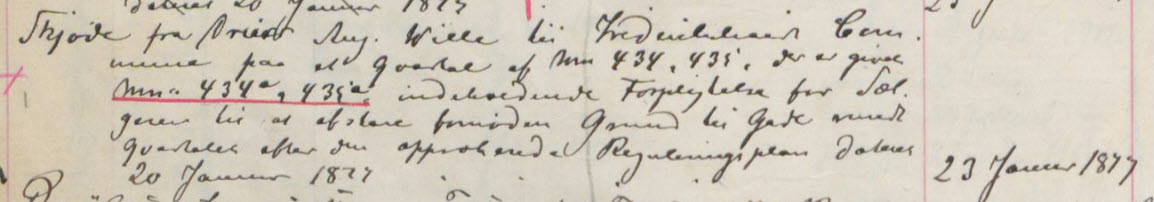 dateret 20 Januar 1877
Skjøde fra Brieer Aug. Wille til Frederikshavn Com-
mune paa et Qvartal af Mn 434, 435, der er given
Mn. 434ª, 435ª, indeholdende Forpligtelse for Sæl-
geren til at afstaae fornøden Grund til Gade rundt
Qvartalet efter den approberede Reguleringsplan dateret
20 Januar 1877
23 Januar 1877